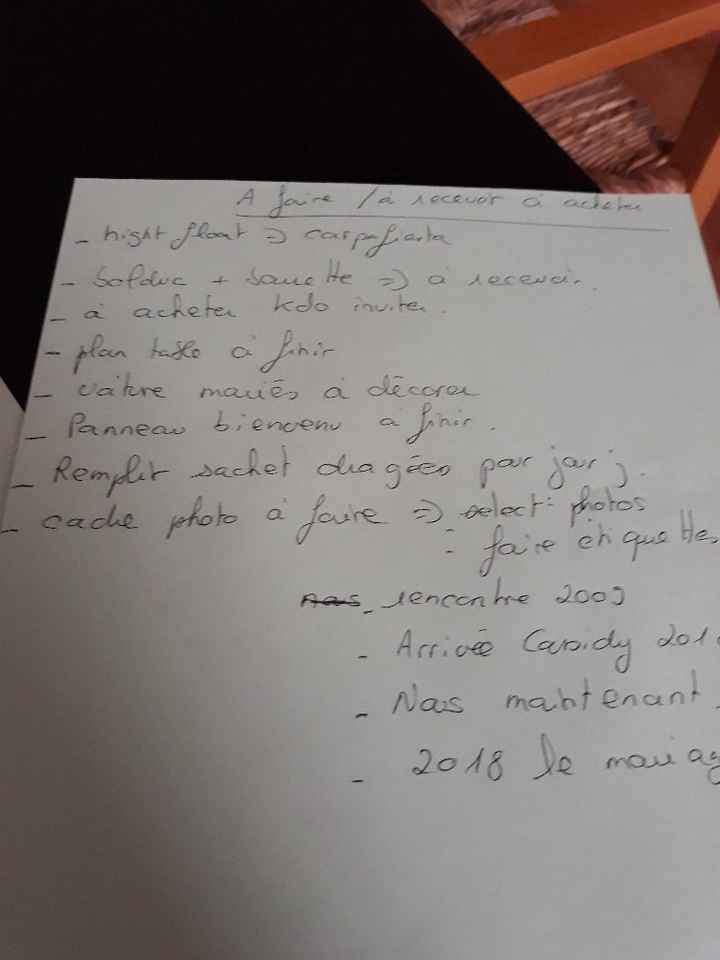 A faire / à recevoir à acheter
- hight float => 
- + => à recevoir.
- à acheter kdo inviter.
- plan table à finir
- voiture mariés à décorer
- Panneau bienvenu à finir.
- Remplir sachet dragées par jar
- cadre photo à faire => select: photos
- faire étiquettes
- rencontre 2009
- Arrivée 201
- maintenant
- 2018 le mariag